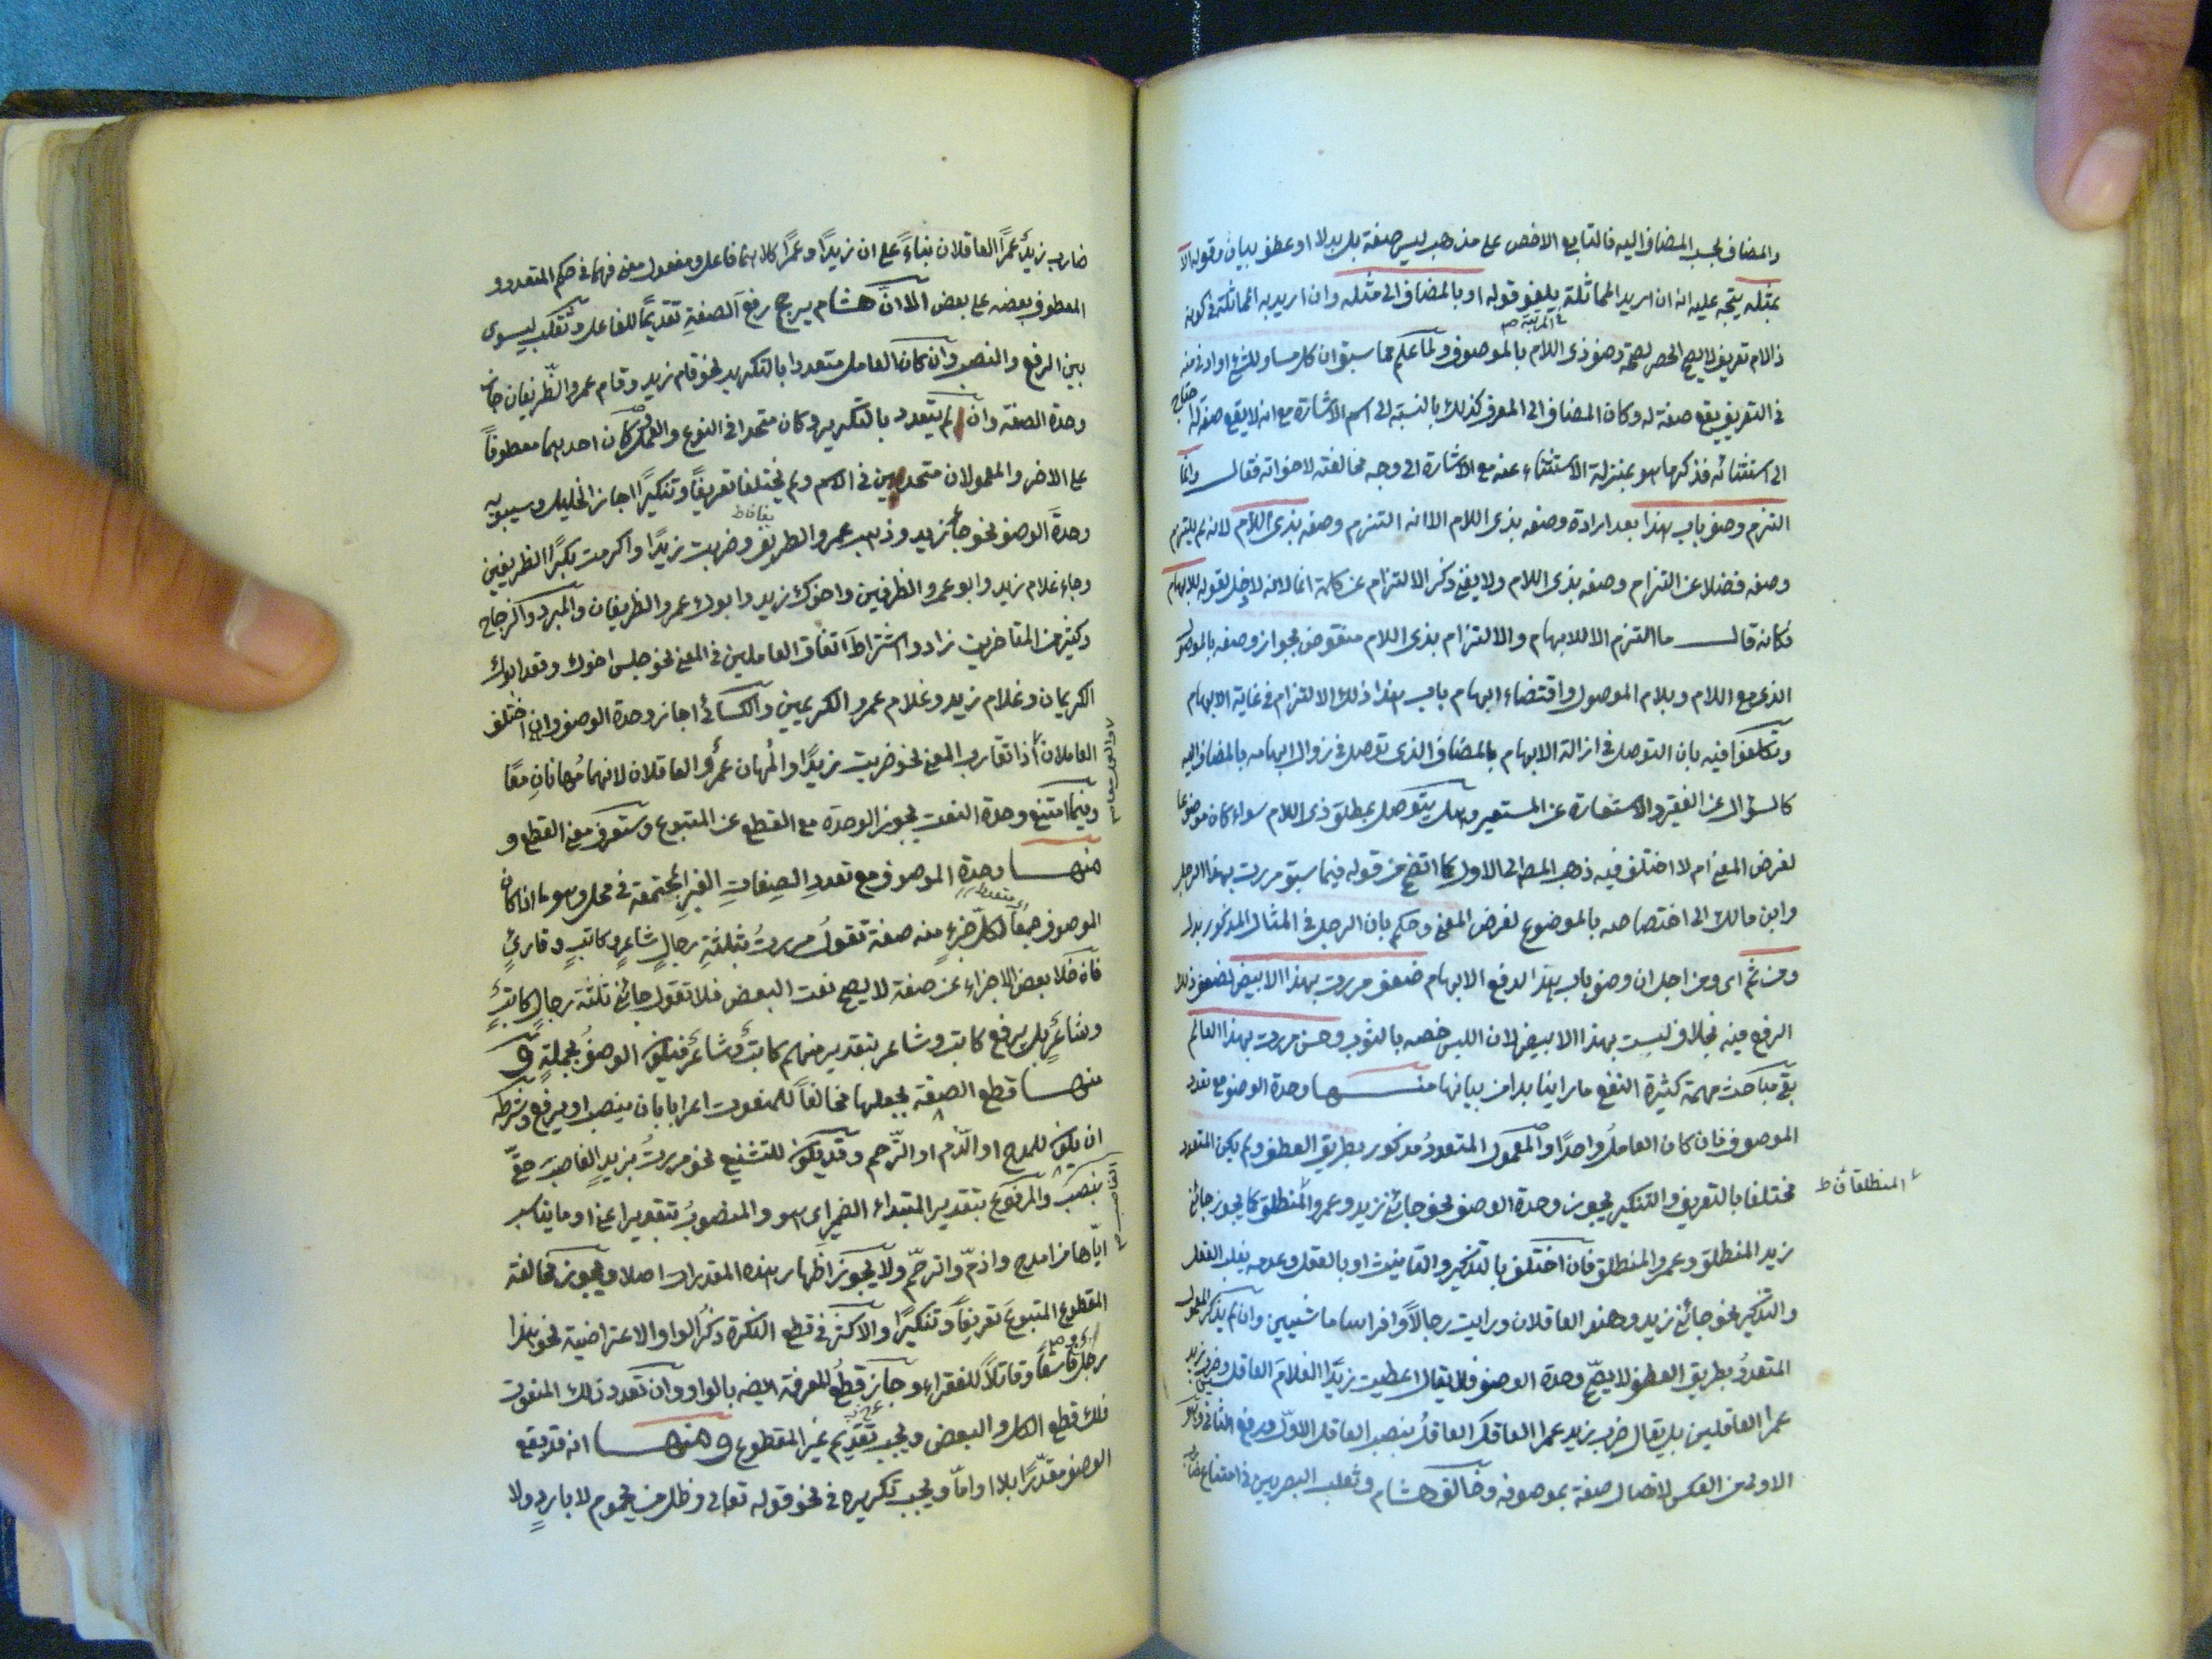 والمضاف بحسب المضاف اليه فالتابع الاخص على مذهب ليس صفة بل بدلا او عطف بيان وقوله الا
بمثله يتجه عليه انه ان اريد المماثلة يلغو قوله او بالمضاف الى مثله وان اريد به المماثلة فى كونه
ذا لام تعريف لا يصح الحصر لصحة وصف ذى اللام بالموصوف ولما علم مما سبق ان كل مساو للشئ او ادنى منه
فى التعريف يقع صفة له وكان المضاف الى المعرف كذلك بالنسبة الى اسم الاشارة مع انه لا يقع صفة له احتاج
الى استثنائه فذكر ما هو بمنزلة الاستثناء عنه مع الاشارة الى وجه مخالفته لاخواته فقال وانما
التزم وصف باب هذا بعد ارادة وصفه بذى اللام الا انه التزم وصفه بذى اللام لانه لم يلتزم
وصفه فضلا عن التزام وصفه بذى اللام ولا يغنى ذكر الالتزام عن كلمة انما لانه لا دخل لقوله للابهام
فكانه قال ما التزم الا للابهام والالتزام بذى اللام منقوض بجواز وصفه بالموصول
الذى مع اللام وبلام الموصول واقتضاء ابهام باب هذا ذلك الالتزام فى غاية الابهام
وتكلفوا فيه بان التوصل فى ازالة الابهام بالمضاف الذى توصل فى زوال ابهامه بالمضاف اليه
كالسؤال عن الفقير والاستعارة عن المستعير وهل يتوصل بمطلق ذى اللام سواء كان موضوعا
لغرض المعنى ام لا اختلف فيه ذهب المص الى الاول كما اتضح من قوله فيما سبق مررت بهذا الرجل
وابن مالك الى اختصاصه بالموضوع لغرض المعنى وحكم بان الرجل فى المثال المذكور بدل
ومن ثم اى ومن اجل ان وصف باب هذا لدفع الابهام ضعف مررت بهذا الابيض لضعف ذلك
الرفع فيه بخلاف لبست بهذا الابيض لان اللبس خصه بالثوب وحسن مررت بهذا العالم
بقى مباحث مهمة كثيرة النفع ما راينا بدا من بيانها منها وحدة الوصف مع تعدد
الموصوف فان كان العامل واحدا والمعمول المتعدد مذكور بطريق العطف ولم يكن المتعدد
مختلفا بالتعريف والتنكير يجوز وحدة الوصف نحو جائنى زيد وعمرو المنطلق كما يجوز جائنى
المنطلقان ط
زيد المنطلق وعمرو المنطلق فان اختلف بالتذكير والتانيث او بالعقل وعدمه يغلب العقل
والتذكير نحو جائنى زيد وهند العاقلان ورايت رجالا وافراسا ماشيين وان لم يذكر المعمول
المتعدد بطريق العطف لا يصح وحدة الوصف فلا يقال اعطيت زيدا الغلام العاقلين وضرب زيد
عمرا العاقلين بل يقال ضرب زيد عمرا العاقل العاقل بنصب العاقل الاول ورفع الثانى وهو
الاولى من العكس لاتصال صفة بموصوفه وخالف هشام وثعلب البصريين فى امتناع ضارب
ضارب زيد عمرا العاقلان بناء على ان زيدا وعمرا كلاهما فاعل ومفعول معنى فهما فى حكم المتعدد و
المعطوف بعضه على بعض الا ان هشام يرجح رفع الصفة تقديما للفاعل وثعلب يسوى
بين الرفع والنصب وان كان العامل متعددا بالتكرير نحو قام زيد وقام عمرو الظريفان جاز
وحدة الصفة وان لم يتعدد بالتكرير وكان متحدا فى النوع والعمل كان احدهما معطوفا
على الاخر والمعمولان متحدين فى الاسم ولم يختلفا تعريفا وتنكيرا اجاز الخليل وسيبويه
وحدة الوصف نحو جاء زيد وذهب عمرو الظريفان وضربت زيدا واكرمت بكرا الظريفين
وجاء غلام زيد وابو عمرو الظرفين واخوك زيد وابوك عمرو الظريفان والمبرد والزجاج
وكثير من المتاخرين زادوا اشتراط اتفاق العاملين فى المعنى نحو جلس اخوك وقعد ابوك
الكريمان وغلام زيد وغلام عمرو الكريمين والكسائى اجاز وحدة الوصف وان اختلف
العاملان اذا تقارب المعنى نحو ضربت زيدا واهان عمرو العاقلان لانهما مهانان معا
وفيما امتنع وحدة النعت يجوز الوحدة مع القطع عن المتبوع وستعرف معنى القطع و
منها وحدة الموصوف مع تعدد الصفات الغير المجتمعة فى محل وهو ما اذا كان
الموصوف جمعا لكل جزء منه صفة تقول مررت بثلثة رجال شاعر وكاتب وقارئ
فان خلا بعض الاجزاء عن صفة لا يصح نعت البعض فلا تقول جائنى ثلثة رجال كاتب
وشاعر بل يرفع كاتب وشاعر بتقدير منهم كاتب وشاعر فيكون الوصف بجملة و
منها قطع الصفة بجعلها مخالفا للمنعوت اعرابا بان ينصب او يرفع وشرطه
ان يكون للمدح او الذم او الترحم وقد يكون للتشنيع نحو مررت بزيد الغاصب حقى
بنصب والمرفوع بتقدير المبتداء الضمير اى هو والمنصوب بتقدير اعنى او ما يناسب
اياها من امدح واذم واترحم ولا يجوز اظهار هذه المقدرات اصلا ويجوز مخالفة
المقطوع المتبوع تعريفا وتنكيرا والاكثر فى قطع النكرة ذكر الواو الاعتراضية نحو هذا
رجل فاسقا وقاتلا للفقراء وجاز قطع المعرفة ايضه بالواو وان تعدد ذلك المنعوت
فلك قطع الكل والبعض ويجب تقديم غير المقطوع ومنها انه قد يقع
الوصف مقدرا بلا او اما ويجب تكريره فى نحو قوله تعالى وظل من يحموم لا بارد ولا